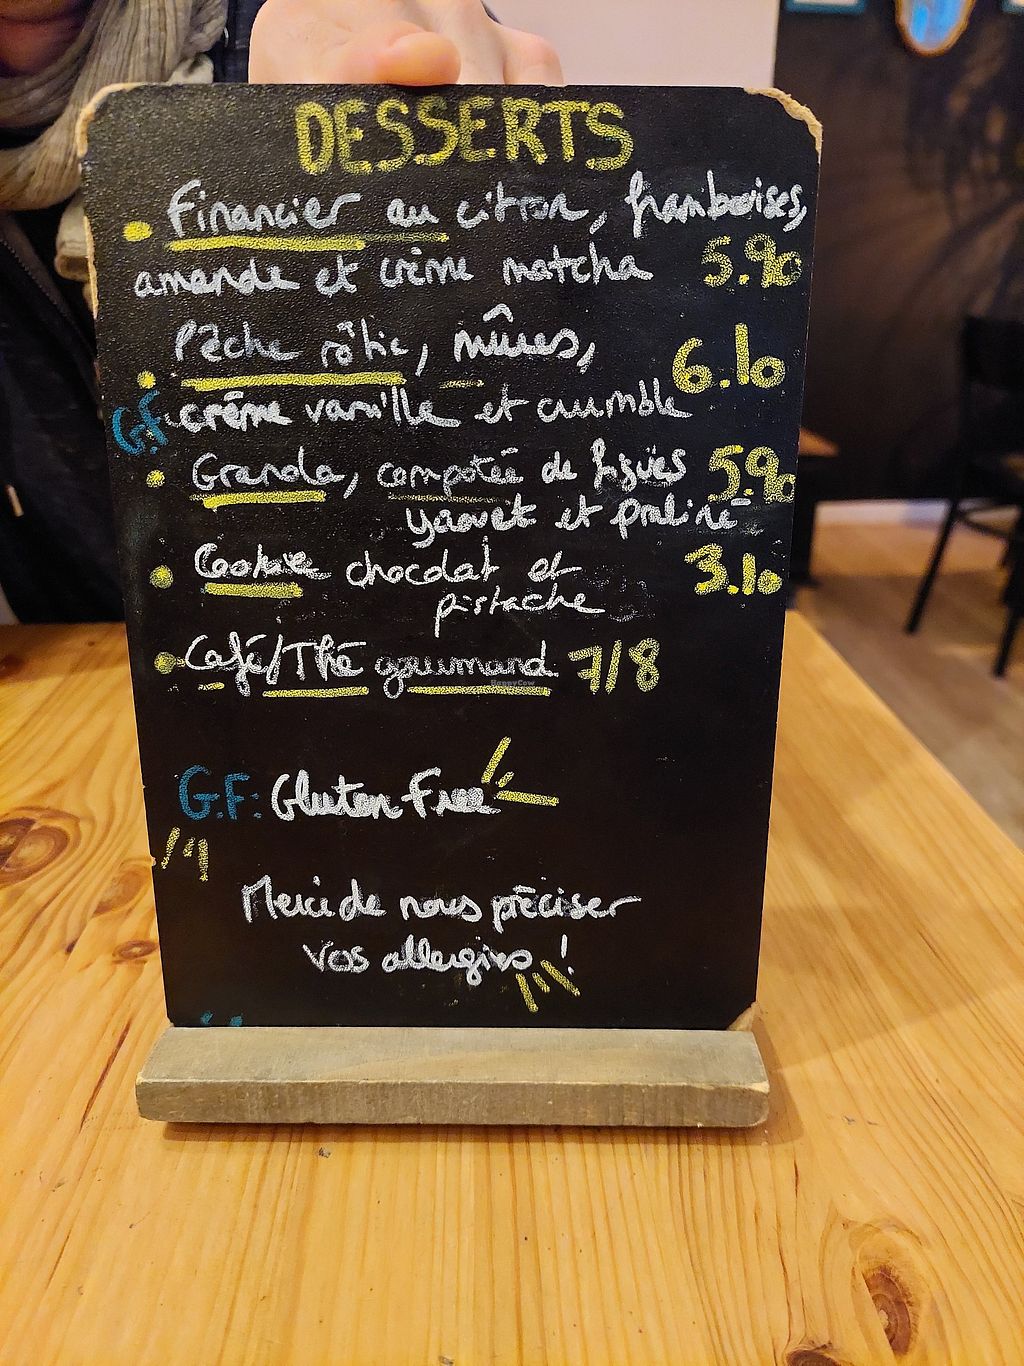 DESSERTS
Financier au citron, framboises,
amande et crème matcha 5.90
Pêche rôtie, mûres,
6.10
G.F. crème vanille et crumble
Granola, compotée de figues 5.90
yaourt et praliné
Cookie chocolat et 3.10
pistache
Café/Thé gourmand 7/8
HappyCow
G.F: Gluten Free
Merci de nous préciser
vos allergies !